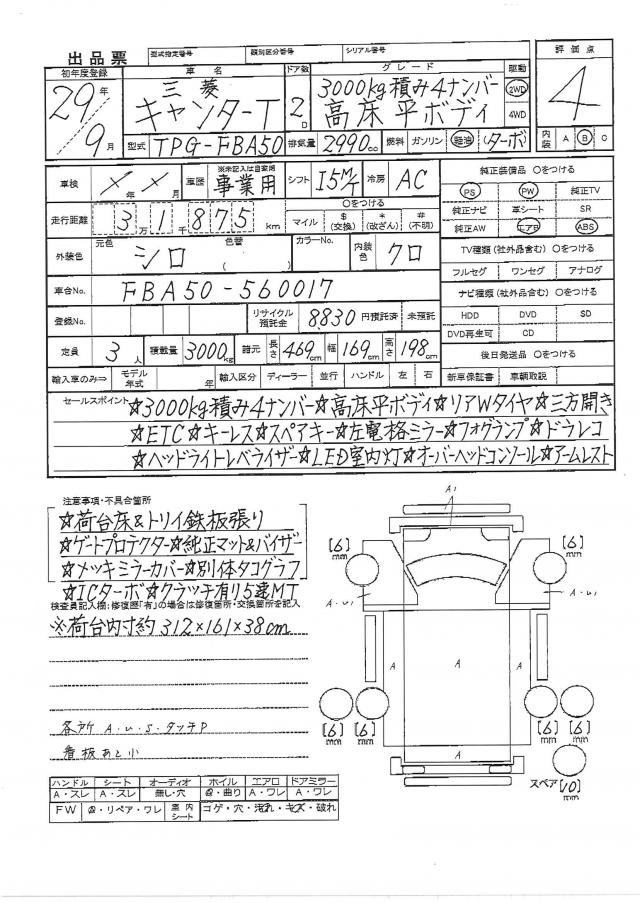 出品票 型式指定番号 類別区分番号 シリアル番号
初年度登録 車名 ドア数 グレード 駆動 評価点
29年 9月 三菱 キャンターT 2D 3000kg積み4ナンバー 高床平ボディ 2WD 4WD 4
型式 TPG-FBA50 排気量 2990cc 燃料 ガソリン 軽油 (ターボ) 内装 A B C
車検 X年X月 車歴 ※未記入は自家用 事業用 シフト I5M/T 冷房 AC 純正装備品 〇をつける
PS PW 純正TV
走行距離 3万1千875km 〇をつける マイル $(交換) *(改ざん) #(不明) 純正ナビ 革シート SR
純正AW エアB ABS
外装色 元色 シロ 色替 ( ) カラーNo. 内装色 クロ TV種類(社外品含む) 〇をつける
フルセグ ワンセグ アナログ
車台No. FBA50-560017 ナビ種類(社外品含む) 〇をつける
登録No. リサイクル預託金 8830円預託済 未預託 HDD DVD SD
DVD再生可 CD
定員 3人 積載量 3000kg 諸元 長さ469cm 幅169cm 高さ198cm 後日発送品 〇をつける
輸入車のみ⇒ モデル年式 年 輸入区分 ディーラー 並行 ハンドル 左 右 新車保証書 車輌取説
セールスポイント ☆3000kg積み4ナンバー☆高床平ボディ☆リアWタイヤ☆三方開き
☆ETC☆キーレス☆スペアキー☆左電格ミラー☆フォグランプ☆ドラレコ
☆ヘッドライトレベライザー☆LED室内灯☆オーバーヘッドコンソール☆アームレスト
注意事項・不具合箇所
☆荷台床&トリイ鉄板張り
☆ゲートプロテクター☆純正マット&バイザー
☆メッキミラーカバー☆別体タコグラフ
☆ICターボ☆クラッチ有り5速MT
検査員記入欄:修復歴「有」の場合は修復箇所・交換箇所を記入
※荷台内寸約312×161×38cm
各所 A・U・S・タッチP
看板あと小
ハンドル シート オーディオ ホイル エアロ ドアミラー
A・スレ A・スレ 無し・穴 傷・曲り A・ワレ A・ワレ
FW 傷・リペア・ワレ 室内シート コゲ・穴・汚れ・キズ・破れ
A1
[6]mm [6]mm
A・U1 A・U1
A A A
[6]mm [6]mm [6]mm [6]mm
A
スペア[10]mm